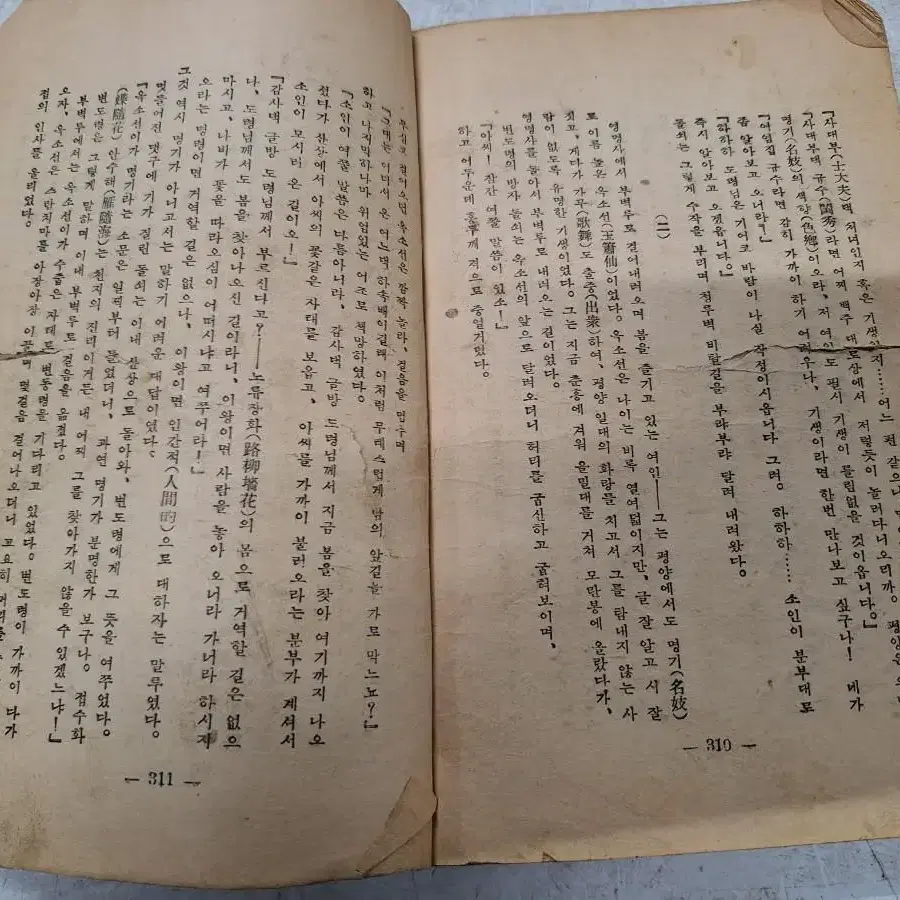 『사대부(士大夫)댁 처녀인지 혹은 기생인지……어느 전
『사대부댁 규수(閨秀)라면 어찌 백주 대로상에서 저렇듯이 놀러다니오리까。평양은
명기(名妓)의 색향(色鄕)이오라、저 여인도 필시 기생이 틀림없을 것이옵니다。』
『여염집 규수라면 감히 가까이 하기 어려우나、기생이라면 한번 만나보고 싶구나! 네가
좀 알아보고 오너라?』
『하하하 도령님은 기어코 바람이 나실 작정이시옵니다 그려。하하하…… 소인이 분부대로
즉시 알아보고 오겠읍니다。』
돌쇠는 그렇게 수작을 부리며 청류벽 비탈길을 부랴부랴 달려 내려왔다。
(二)
영명사에서 부벽루로 걸어내려오며 봄을 즐기고 있는 여인——그는 평양에서도 명기(名妓)
로 이름 높은 옥소선(玉簫仙)이었다。옥소선은 나이는 비록 열여덟이지만、글 잘 알고 시 잘
짓고、게다가 가무(歌舞)도 출중(出衆)하여、평양 일대의 화랑을 치고서 그를 탐내지 않는 사
람이 없도록 유명한 기생이었다。그는 지금 춘흥에 겨워 을밀대를 거쳐 모란봉에 올랐다가、
영명사를 돌아서 부벽루로 내려오는 길이었다。
변도령의 방자 돌쇠는 옥소선의 앞으로 달려오더니 허리를 굽신하고 굽혀보이며、
『아씨! 잠깐 여쭐 말씀이 있소!』
하고 어두운데 홍두깨 격으로 중얼거렸다。
— 310 —
옥소선은 깜짝 놀라、걸음을 멈추며
『그대는 어디서 온 어느 댁 하속배이길래 이처럼 무례스럽게 남의 앞길을 가로 막느뇨?』
하고 나지막하나마 위엄있는 어조로 책망하였다。
『소인이 여쭐 말씀은 다름아니라、감사댁 글방 도령님께서 지금 봄을 찾아 여기까지 나오
셨다가 산상에서 아씨의 꽃같은 자태를 보옵고、아씨를 가까이 불러오라는 분부가 계셔서
소인이 모시러 온 길이오!』
『감사댁 글방 도령님께서 부르신다고?——노류장화(路柳墻花)의 몸으로 거역할 길은 없으
나、도령님께서도 봄을 찾아나오신 길이라니、이왕이면 사람을 놓아 오너라 가너라 하시지
마시고、나비가 꽃을 따라오심이 어떠시냐고 여쭈어라!』
오라는 명령이면 거역할 길은 없으나、이왕이면 인간적(人間的)으로 대하자는 말투였다。
그것 역시 명기가 아니고서는 말하기 어려운 대답이었다。
멋들어진 댓구에 기가 질린 돌쇠는 이내 산상으로 돌아와、변도령에게 그 뜻을 여쭈었다。
『옥소선이 명기라는 소문은 일찍부터 들었더니、과연 명기가 분명한가 보구나。접수화
(蝶隨花) 안수해(雁隨海)는 천지의 진리이거든 내 어찌 그를 찾아가지 않을 수 있겠느냐!』
변도령은 그렇게 말하며 이내 부벽루로 걸음을 옮겼다。
부벽루에서는 옥소선이가 수줍은 자태로 변도령을 기다리고 있었다。변도령이 가까이 다가
오자、옥소선은 스란치마를 아장아장 이끌며 몇걸음 걸어나오더니 고요히 머리를
접의 인사를 올리었다。
— 311 —